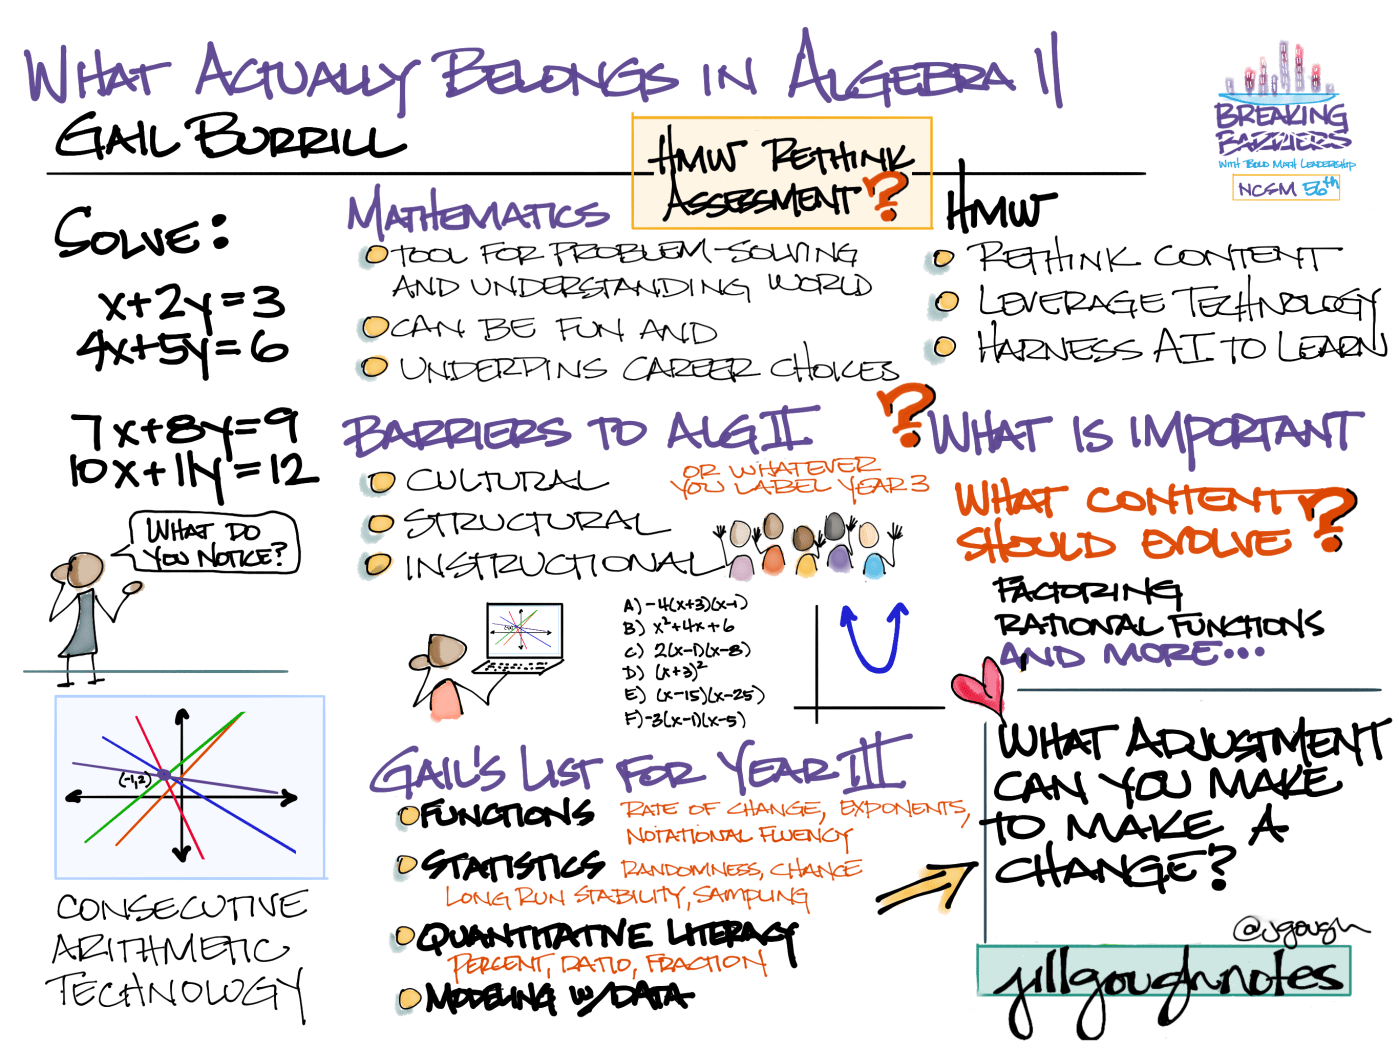 WHAT ACTUALLY BELONGS IN ALGEBRA II
GAIL BURRILL
HMW RETHINK
ASSESSMENT?
BREAKING
BARRIERS
WITH BOLD MATH LEADERSHIP
NCSM 56th
SOLVE:
x+2y=3
4x+5y=6
7x+8y=9
10x+11y=12
WHAT DO
YOU NOTICE?
(-1,2)
CONSECUTIVE
ARITHMETIC
TECHNOLOGY
MATHEMATICS
TOOL FOR PROBLEM-SOLVING
AND UNDERSTANDING WORLD
CAN BE FUN AND
UNDERPINS CAREER CHOICES
BARRIERS TO ALG II
OR WHATEVER
YOU LABEL YEAR 3
CULTURAL
STRUCTURAL
INSTRUCTIONAL
A) -4(x+3)(x-1)
B) x²+4x+6
C) 2(x-1)(x-8)
D) (x+3)²
E) (x-15)(x-25)
F) -3(x-1)(x-5)
GAIL'S LIST FOR YEAR III
FUNCTIONS RATE OF CHANGE, EXPONENTS,
NOTATIONAL FLUENCY
STATISTICS RANDOMNESS, CHANCE
LONG RUN STABILITY, SAMPLING
QUANTITATIVE LITERACY
PERCENT, RATIO, FRACTION
MODELING w/DATA
HMW
RETHINK CONTENT
LEVERAGE TECHNOLOGY
HARNESS AI TO LEARN
? WHAT IS IMPORTANT
WHAT CONTENT
SHOULD EVOLVE?
FACTORING
RATIONAL FUNCTIONS
AND MORE...
WHAT ADJUSTMENT
CAN YOU MAKE
TO MAKE A
CHANGE?
@jgough
jillgough.notes